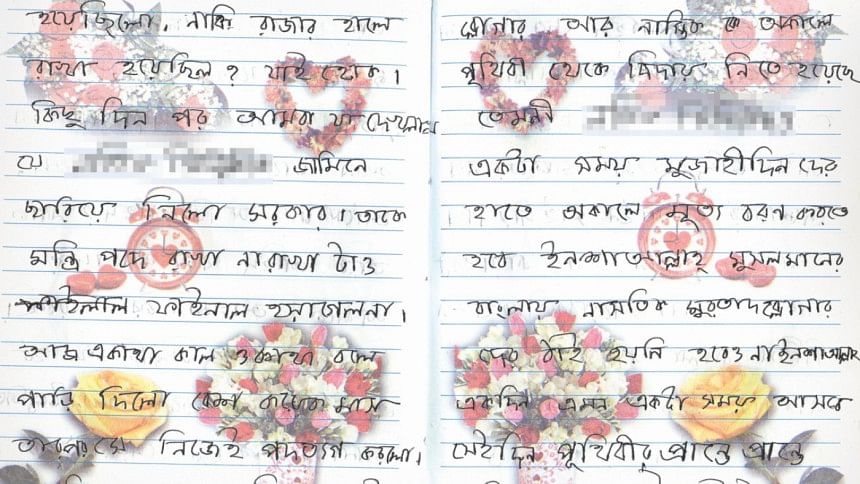 হয়েছিলো, নাকি রাজার হালে
রাখা হয়েছিল? যাই হোক।
কিছু দিন পর আমরা যা দেখলাম
যে জামিনে
ছারিয়ে নিলো সরকার। তাকে
মন্ত্রি পদে রাখা না রাখা টাও
ফাইনাল হলোনা।
আজ একথা কাল ওকথা বলে
পারি দিলো বেশ কয়েক মাস
তারপর সে নিজেই পদত্যাগ করলো।
ব্লোগার আর নাস্তিক কে অকালে
পৃথিবী থেকে বিদায় নিতে হয়েছে
তেমনী
একটা সময় মুজাহীদিন দের
হাতে অকালে মৃত্য বরণ করতে
হবে ইনশাআল্লাহ্ মুসলমানের
বাংলায় নাসতিক মুরতাদ ব্লোগার
দের ঠাঁই হয়নি হবেও না ইনশাআল্লাহ
একদিন এমন একটা সময় আসবে
সেইদিন পৃথিবীর প্রান্তে প্রান্তে